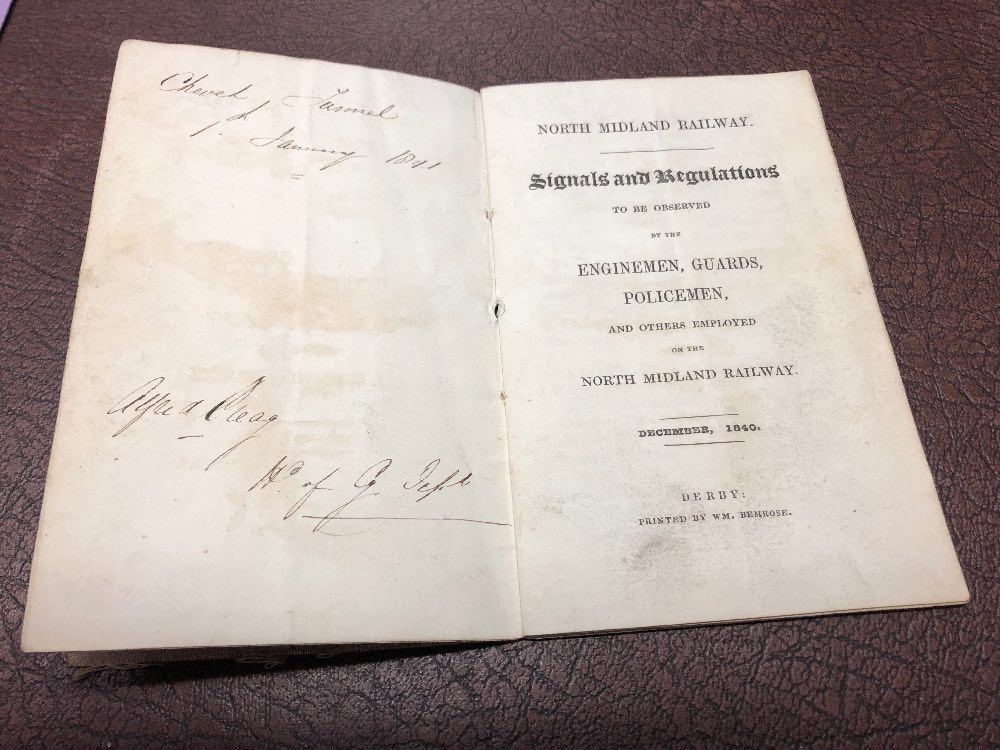 Chevet Tunnel
1st January 1841
Alfred
Hd of G.
NORTH MIDLAND RAILWAY.
Signals and Regulations
TO BE OBSERVED
BY THE
ENGINEMEN, GUARDS,
POLICEMEN,
AND OTHERS EMPLOYED
ON THE
NORTH MIDLAND RAILWAY.
DECEMBER, 1840.
DERBY:
PRINTED BY WM. BEMROSE.